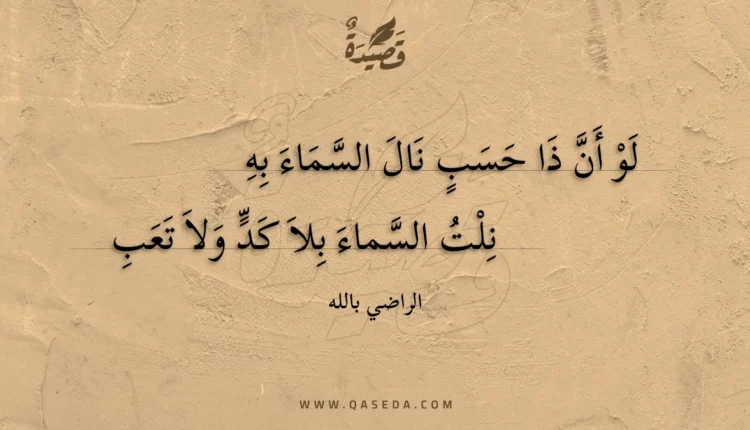 قَصِيدَةٌ
لَوْ أَنَّ ذَا حَسَبٍ نَالَ السَّمَاءَ بِهِ
نِلْتُ السَّماءَ بِلاَ كَدٍّ وَلاَ تَعَبِ
الراضي بالله
WWW.QASEDA.COM